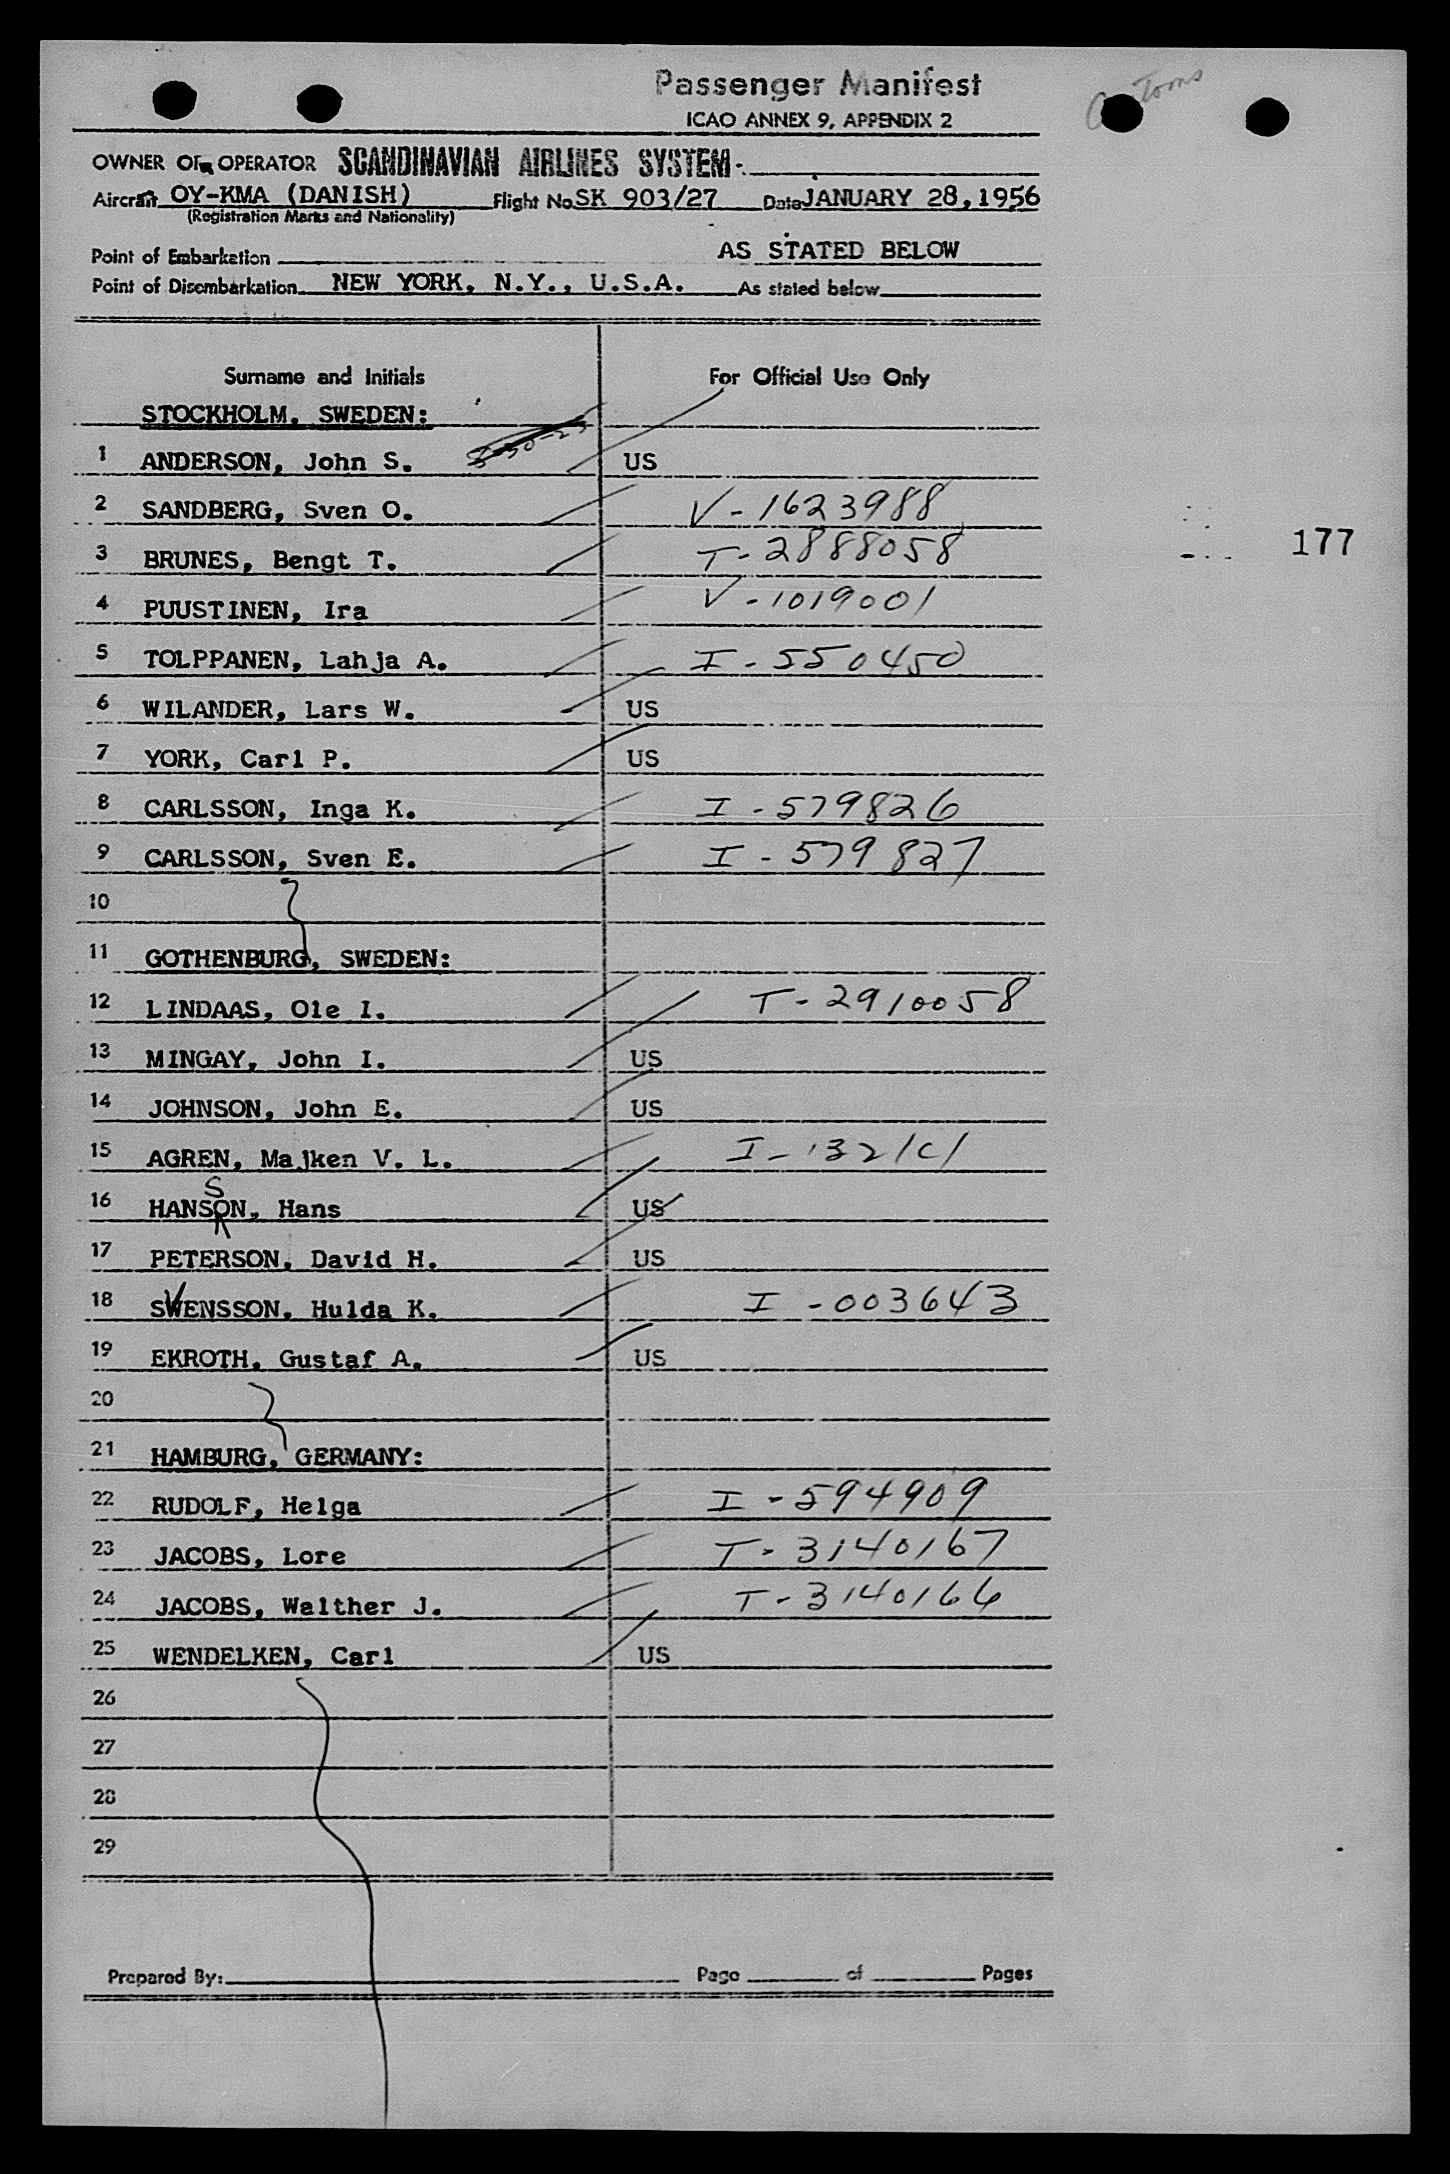 Passenger Manifest
ICAO ANNEX 9, APPENDIX 2
OWNER OR OPERATOR SCANDINAVIAN AIRLINES SYSTEM.
Aircraft OY-KMA (DANISH) Flight No. SK 903/27 Date JANUARY 28, 1956
(Registration Marks and Nationality)
Point of Embarkation AS STATED BELOW
Point of Disembarkation NEW YORK, N.Y., U.S.A. As stated below
Surname and Initials For Official Use Only
STOCKHOLM, SWEDEN:
1 ANDERSON, John S. US
2 SANDBERG, Sven O. V-1623988
3 BRUNES, Bengt T. T-2888058
177
4 PUUSTINEN, Ira V-1019001
5 TOLPPANEN, Lahja A. I-550450
6 WILANDER, Lars W. US
7 YORK, Carl P. US
8 CARLSSON, Inga K. I-579826
9 CARLSSON, Sven E. I-579827
10
11 GOTHENBURG, SWEDEN:
12 LINDAAS, Ole I. T-2910058
13 MINGAY, John I. US
14 JOHNSON, John E. US
15 AGREN, Majken V. L.
16 HANSSON, Hans US
17 PETERSON, David H. US
18 SVENSSON, Hulda K. I-003643
19 EKROTH, Gustaf A. US
20
21 HAMBURG, GERMANY:
22 RUDOLF, Helga I-594909
23 JACOBS, Lore T-3140167
24 JACOBS, Walther J. T-3140166
25 WENDELKEN, Carl US
26
27
28
29
Prepared By: Page of Pages